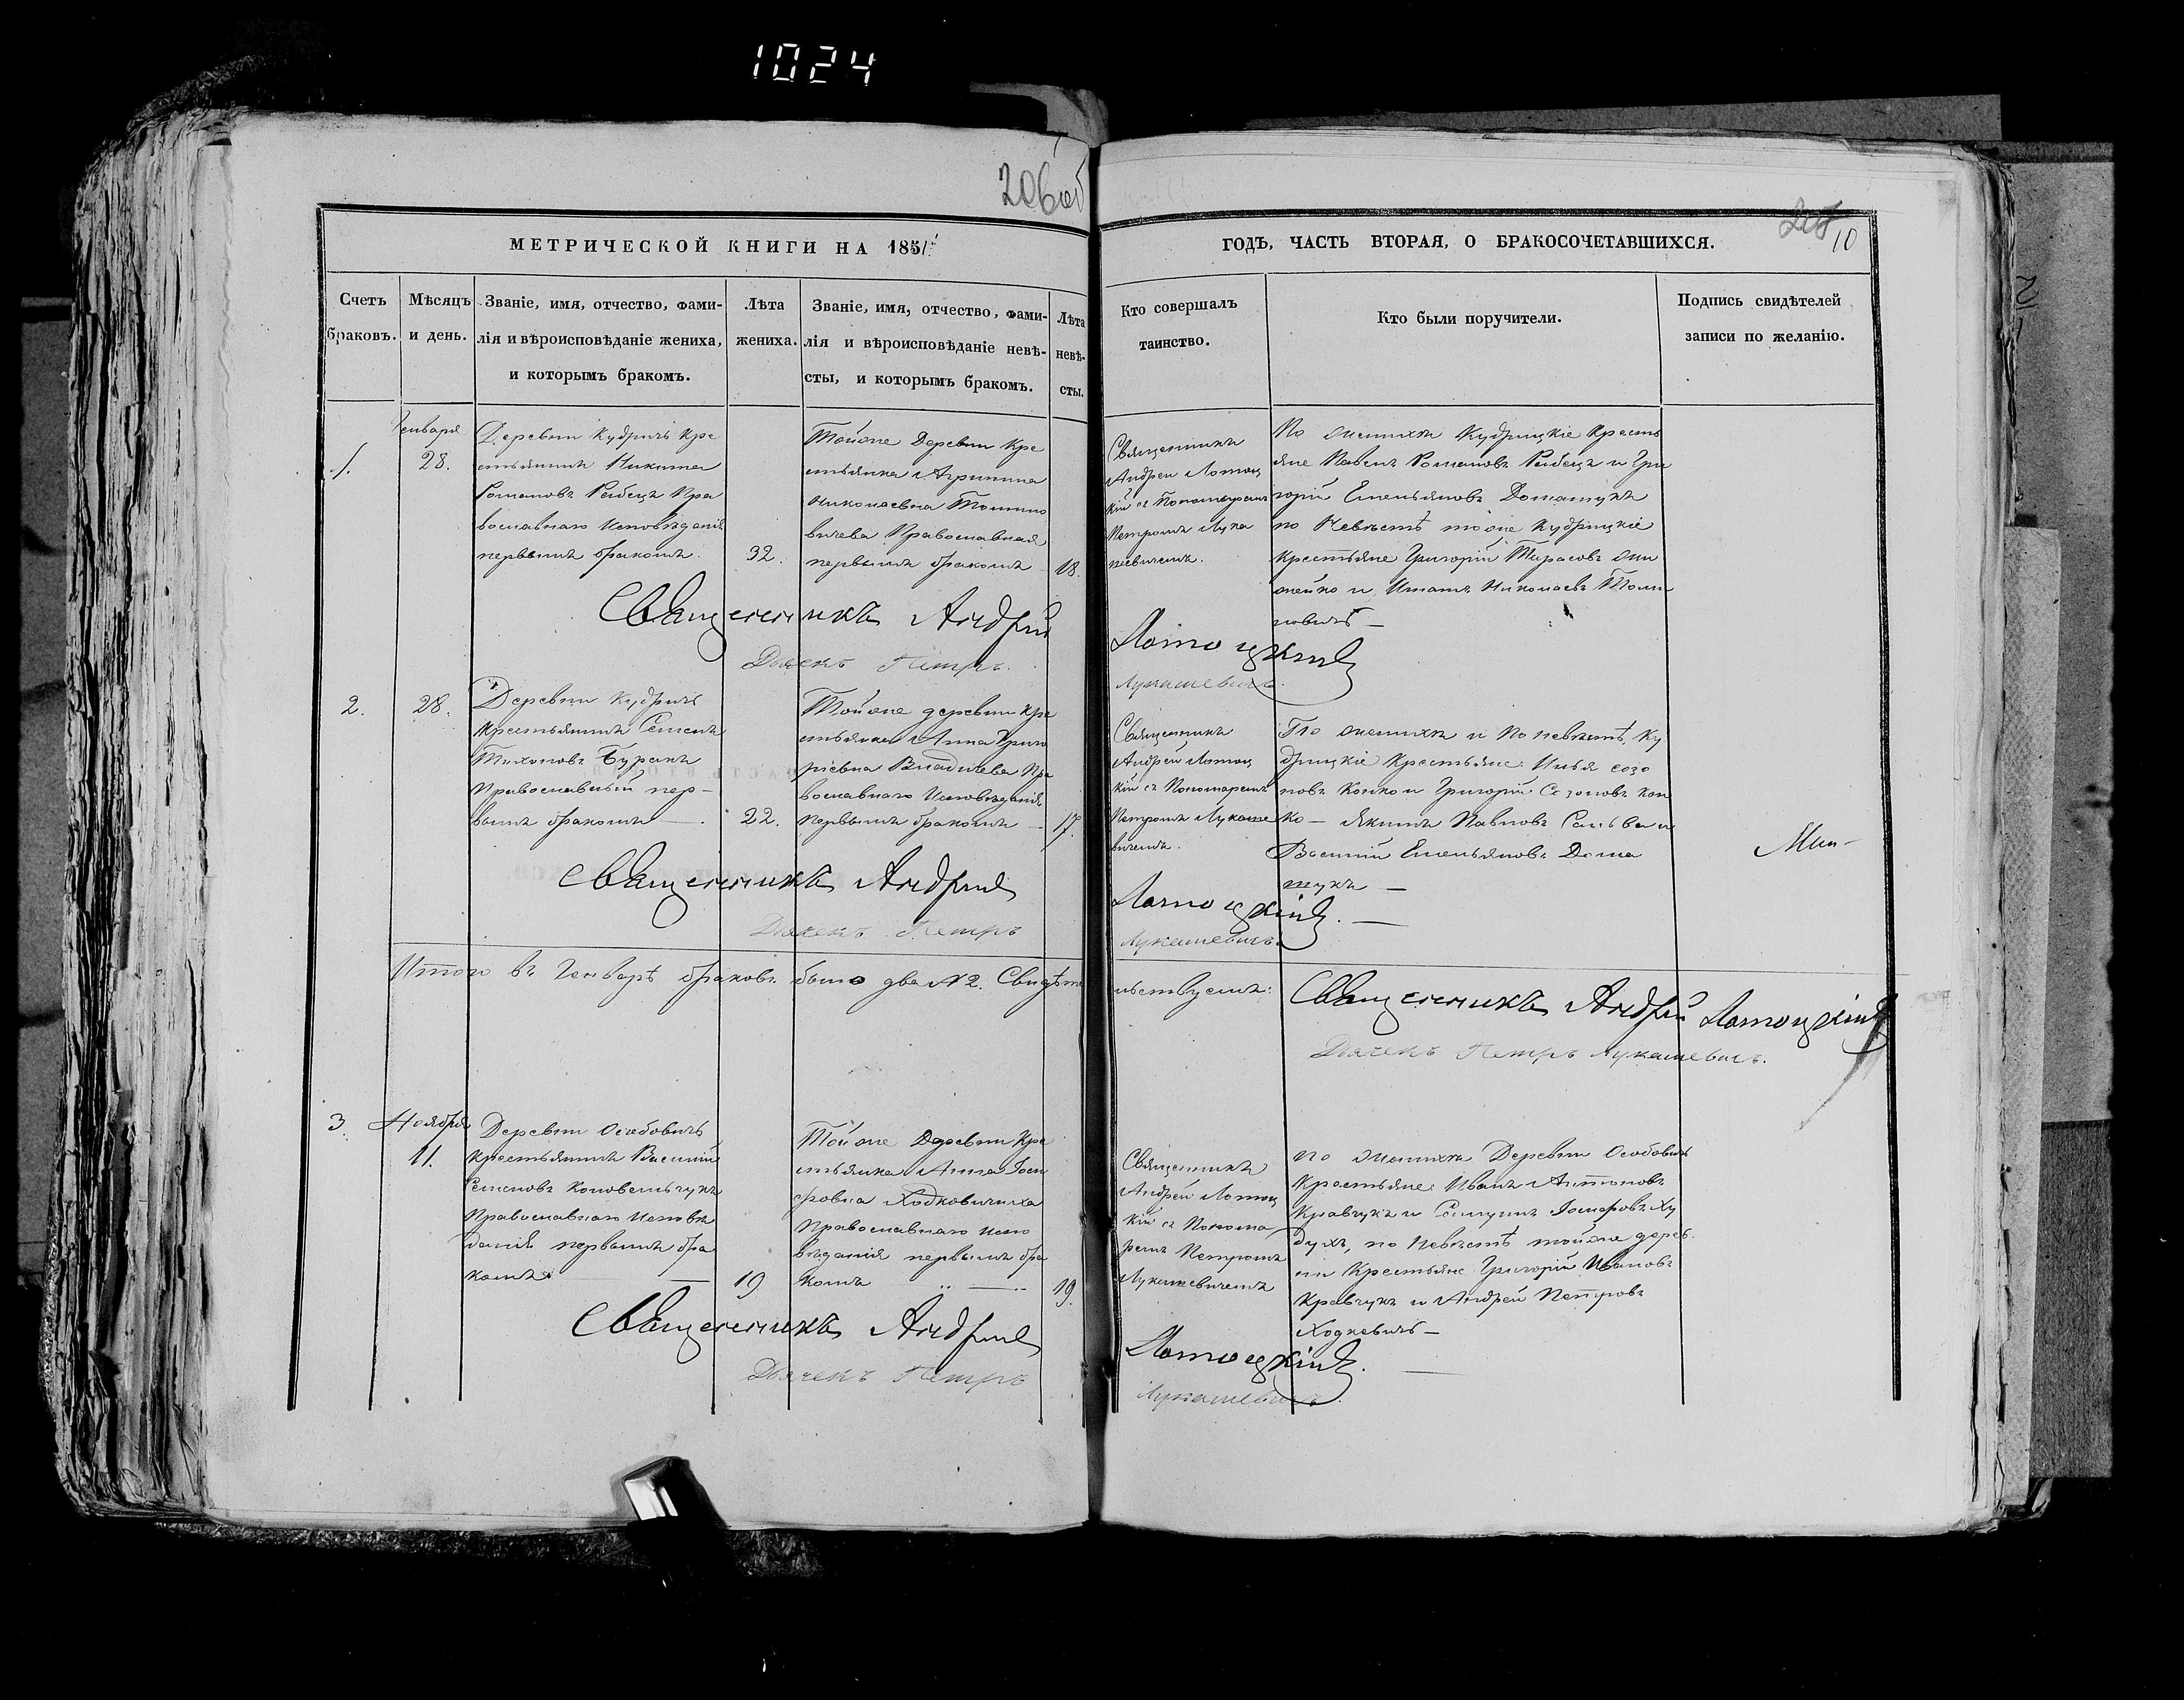 1024
206об
10
МЕТРИЧЕСКОЙ КНИГИ НА 1851
Счетъ
браковъ.
Мѣсяцъ
и день.
Званіе, имя, отчество, фами-
лія и вѣроисповѣданіе жениха,
и которымъ бракомъ.
Лѣта
жениха.
Званіе, имя, отчество, фами-
лія и вѣроисповѣданіе невѣ-
сты, и которымъ бракомъ.
Лѣта
невѣ-
сты.
ГОДЪ, ЧАСТЬ ВТОРАЯ, О БРАКОСОЧЕТАВШИХСЯ.
Кто совершалъ
таинство.
Кто были поручители.
Подпись свидѣтелей
записи по желанію.
1.
Генваря
28.
Деревни Кудричъ Кре
стьянинъ Никита
Романовъ Рыбецъ Пра
вославнаго Исповѣданія
первымъ бракомъ.
32.
Тойже Деревни Кре
стьянка Агрипина
Николаевна
вичева Православная
первымъ бракомъ
18.
Священникъ
Андрей Лотоц
кій съ Пономаремъ
Петромъ Лука
шевичемъ.
По женихѣ Кудрицкіе Кресть
яне Павелъ Романовъ Рыбецъ и Гри
горій Емельяновъ Домашукъ
по Невѣстѣ тоже Кудрицкіе
крестьяне Григорій Тарасовъ
и Игнатъ Николаевъ
новичъ —
Священникъ Андрей Лотоцкій
Дьячекъ Петръ Лукашевичъ.
2.
28.
Деревни Кудричъ
Крестьянинъ Семенъ
Тихоновъ Буракъ
Православный пер-
вымъ бракомъ — .
22.
Тойже деревни Кре
стьянка Анна Григо
ріевна Пра
вославнаго Исповѣданія
первымъ бракомъ —
17.
Священникъ
Андрей Лотоц
кій съ Пономаремъ
Петромъ Лукаше
вичемъ.
По женихѣ и По невѣстѣ Ку
дрицкіе Крестьяне: Илья Созо
новъ Конко и Григорій Созоновъ Кон
ко — Якимъ Павловъ и
Василій Емельяновъ Дома
шукъ —
Священникъ Андрей Лотоцкій. —
Дьячекъ Петръ Лукашевичъ.
Итого въ Генварѣ браковъ было два N 2. Свидѣте
льствуемъ:
Священникъ Андрей Лотоцкій
Дьячекъ Петръ Лукашевичъ.
3.
Ноября
11.
Деревни Особовичъ
Крестьянинъ Василій
Семеновъ Коновальчукъ
Православнаго Исповѣ
данія первымъ бра
комъ —
19
Тойже Деревни Кре
стьянка Анна Іоси
фовна Ходковичиха
Православнаго Испо
вѣданія первымъ бра
комъ —
19.
Священникъ
Андрей Лотоц
кій съ Понома
ремъ Петромъ
Лукашевичемъ
по женихѣ Деревни Особовичъ
Крестьяне: Иванъ Антоновъ
Кравчукъ и Іосифовъ Ху
дукъ, по Невѣстѣ тойже дерев
ни Крестьяне Григорій Ивановъ
Кравчукъ и Андрей Петровъ
Ходкевичъ —
Священникъ Андрей Лотоцкій. —
Дьячекъ Петръ Лукашевичъ.